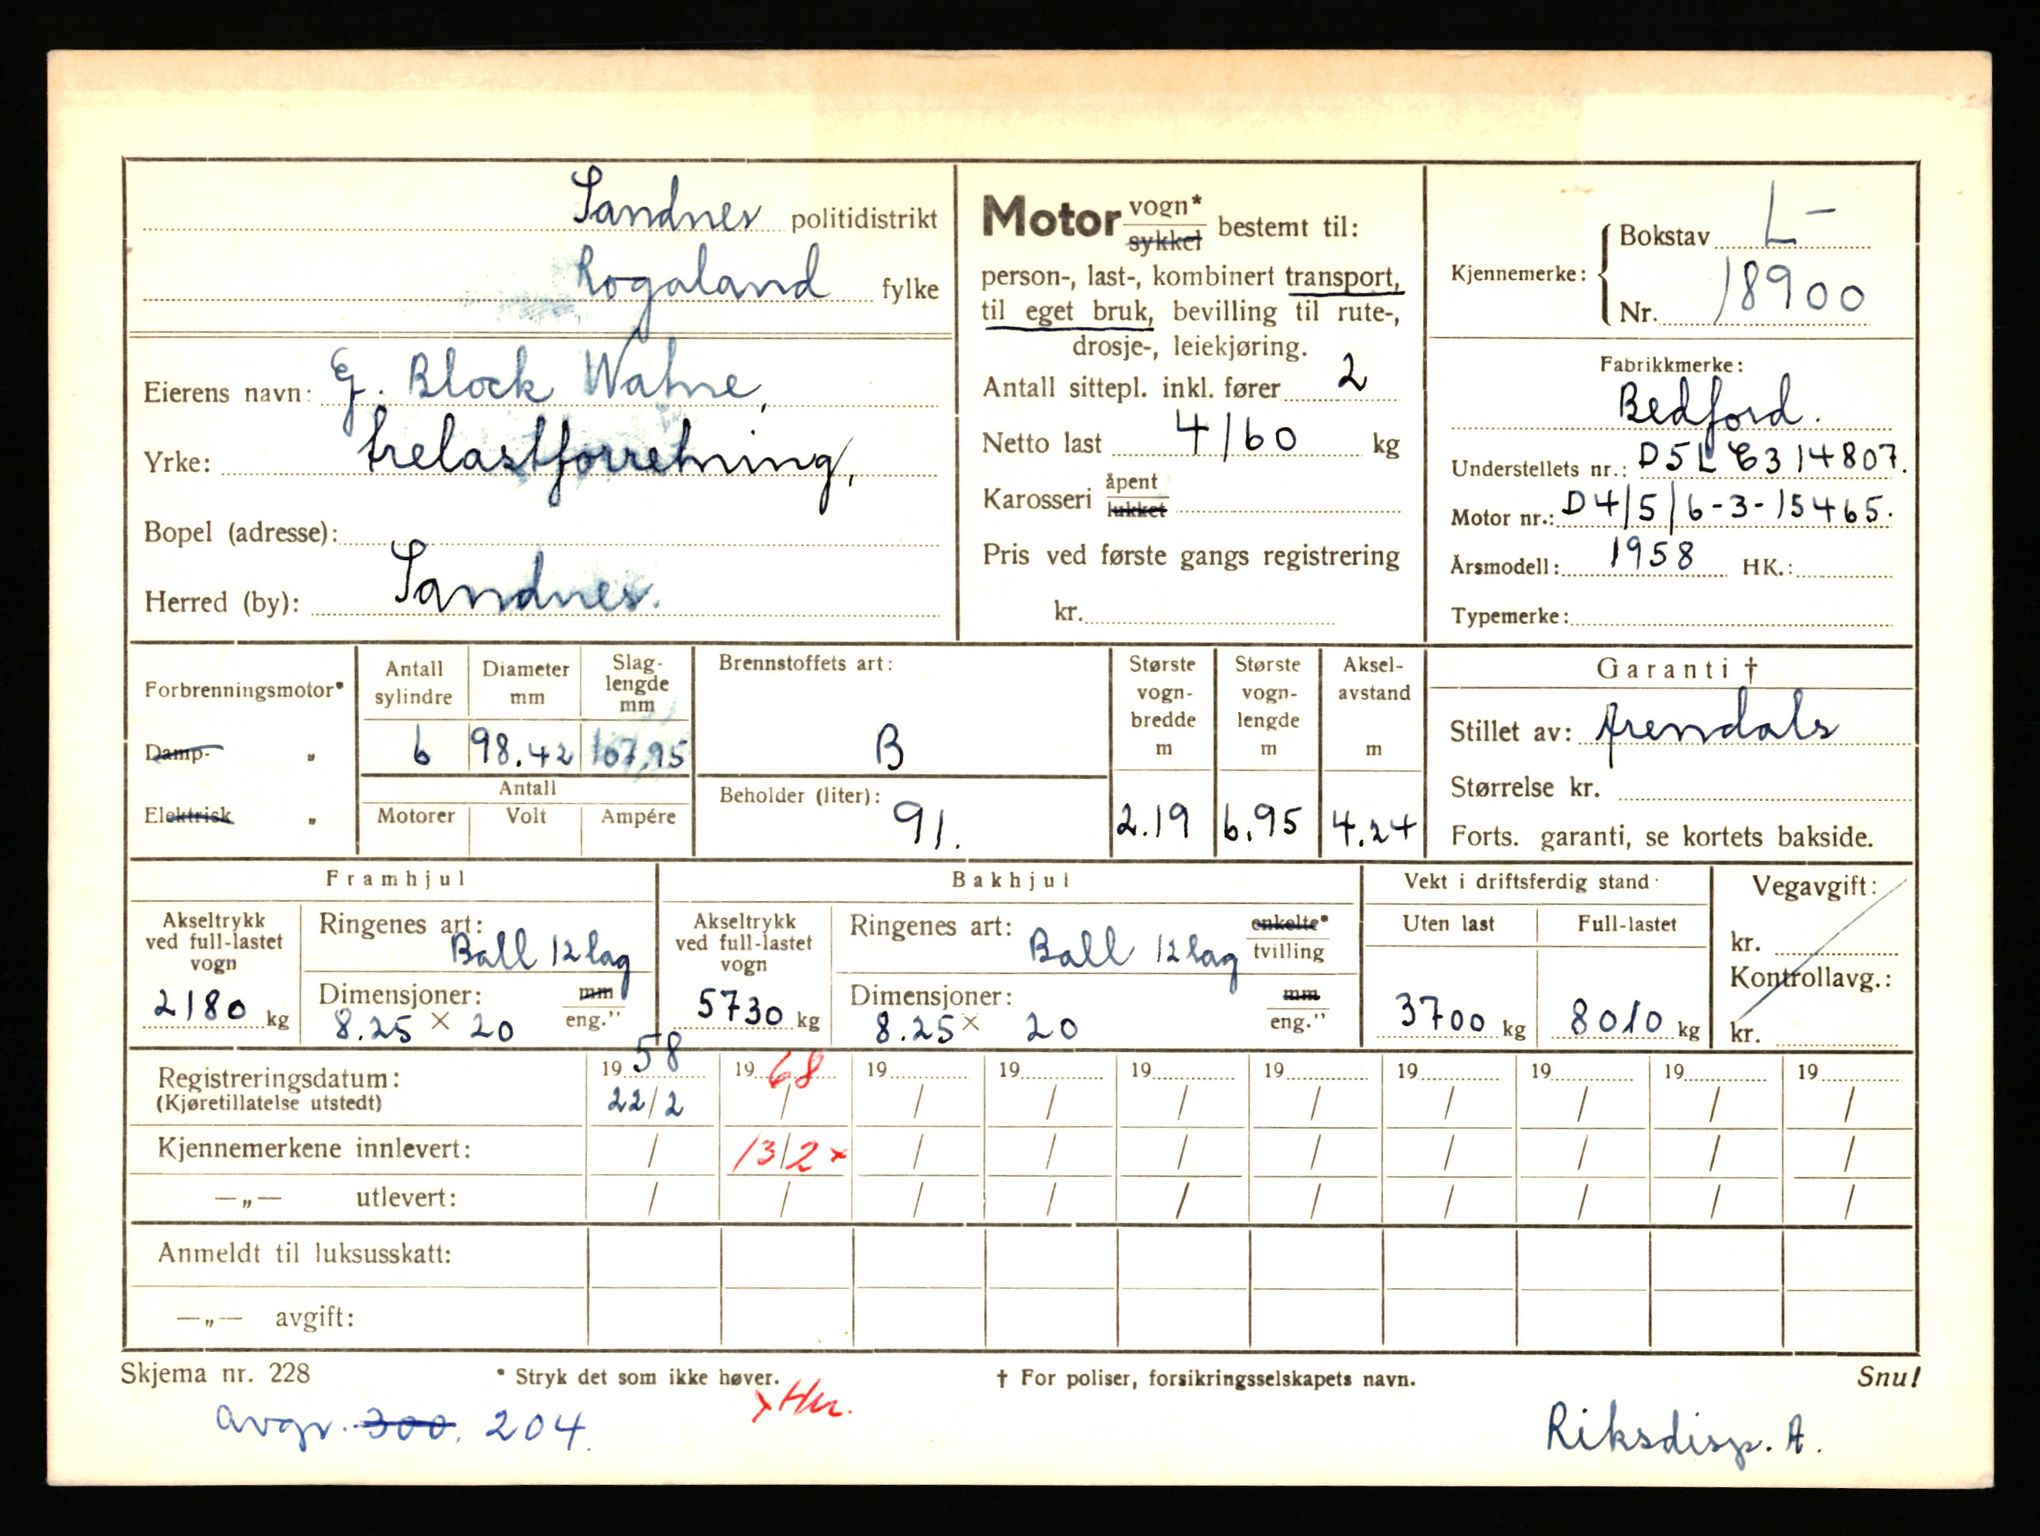 Sandnes politidistrikt
Rogaland fylke
Eierens navn: G. Block Watne,
Yrke: trelastforretning,
Bopel (adresse):
Herred (by): Sandnes.
Motor vogn* sykkel bestemt til:
person-, last-, kombinert transport,
til eget bruk, bevilling til rute-,
drosje-, leiekjøring.
Antall sittepl. inkl. fører 2
Netto last 4160 kg
Karosseri åpent lukket
Pris ved første gangs registrering
kr.
Kjennemerke: Bokstav L-
Nr. 18900
Fabrikkmerke:
Bedford.
Understellets nr.: D5L E314807.
Motor nr.: D4/5/6-3-15465.
Årsmodell: 1958 HK.:
Typemerke:
Forbrenningsmotor*
Damp- „
Elektrisk „
Antall sylindre
Diameter mm
Slaglengde mm
6 98.42 107,95
Antall
Motorer Volt Ampére
Brennstoffets art:
B
Beholder (liter):
91.
Største vognbredde m
2.19
Største vognlengde m
6.95
Akselavstand m
4.24
Garanti †
Stillet av: Arendals
Størrelse kr.
Forts. garanti, se kortets bakside.
Framhjul
Akseltrykk ved full-lastet vogn
2180 kg
Ringenes art: Ball 12 lag
Dimensjoner: mm eng."
8.25 × 20
Bakhjul
Akseltrykk ved full-lastet vogn
5730 kg
Ringenes art: Ball 12 lag enkelte* tvilling
Dimensjoner: mm eng."
8.25 × 20
Vekt i driftsferdig stand
Uten last Full-lastet
3700 kg 8010 kg
Vegavgift:
kr.
Kontrollavg.:
kr.
Registreringsdatum: 19 58 19 68 19 19 19 19 19 19 19 19
(Kjøretillatelse utstedt) 22/2 / / / / / / / / /
Kjennemerkene innlevert: / 13/2 × / / / / / / / /
—„— utlevert: / / / / / / / / / /
Anmeldt til luksusskatt:
—„— avgift:
Skjema nr. 228 * Stryk det som ikke høver. † For poliser, forsikringsselskapets navn. Snu!
× Hu.
avgr. 300. 204.
Riksdisp. A.